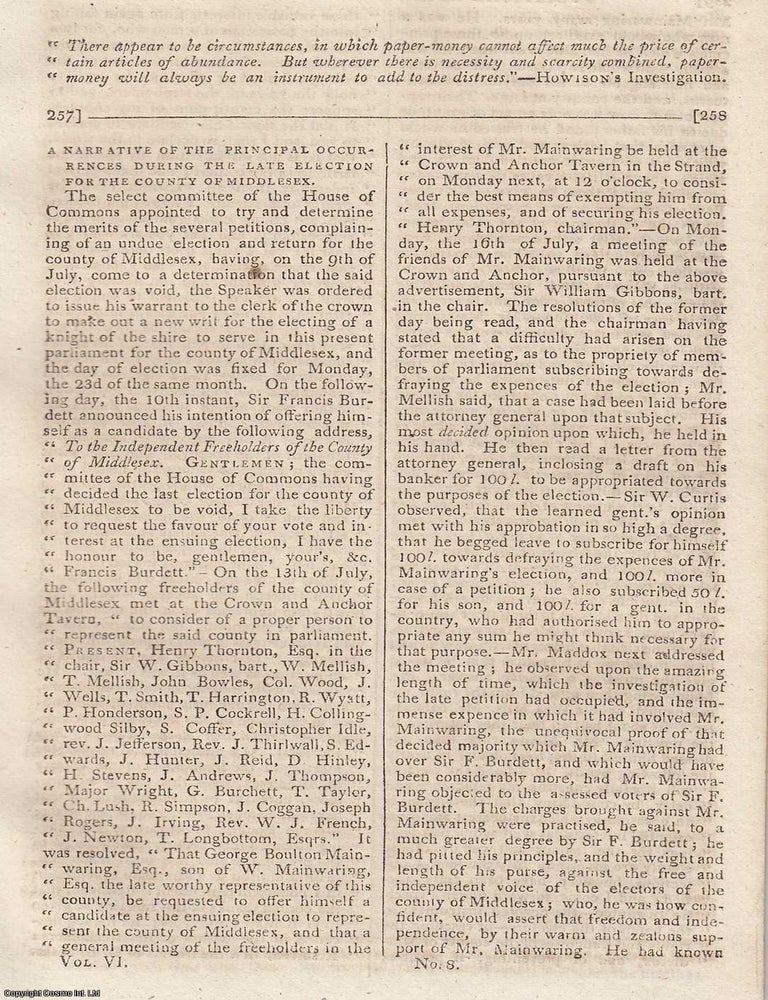 “ There appear to be circumstances, in which paper-money cannot affect much the price of cer-
“ tain articles of abundance. But wherever there is necessity and scarcity combined, paper-
“ money will always be an instrument to add to the distress.”—Howison's Investigation.
257]
[258
A NARRATIVE OF THE PRINCIPAL OCCUR-
RENCES DURING THE LATE ELECTION
FOR THE COUNTY OF MIDDLESEX.
The select committee of the House of
Commons appointed to try and determine
the merits of the several petitions, complain-
ing of an undue election and return for the
county of Middlesex, having, on the 9th of
July, come to a determination that the said
election was void, the Speaker was ordered
to issue his warrant to the clerk of the crown
to make out a new writ for the electing of a
knight of the shire to serve in this present
parliament for the county of Middlesex, and
the day of election was fixed for Monday,
the 23d of the same month. On the follow-
ing day, the 10th instant, Sir Francis Bur-
dett announced his intention of offering him-
self as a candidate by the following address,
“ To the Independent Freeholders of the County
“ of Middlesex. GENTLEMEN ; the com-
“ mittee of the House of Commons having
“ decided the last election for the county of
“ Middlesex to be void, I take the liberty
“ to request the favour of your vote and in-
“ terest at the ensuing election, I have the
“ honour to be, gentlemen, your's, &c.
“ Francis Burdett.”—On the 13th of July,
the following freeholders of the county of
Middlesex met at the Crown and Anchor
Tavern, “ to consider of a proper person to
“ represent the said county in parliament.
“ PRESENT, Henry Thornton, Esq. in the
“ chair, Sir W. Gibbons, bart., W. Mellish,
“ T. Mellish, John Bowles, Col. Wood, J.
“ Wells, T. Smith, T. Harrington, R. Wyatt,
“ P. Honderson, S. P. Cockrell, H. Colling-
“ wood Silby, S. Coffer, Christopher Idle,
“ rev. J. Jefferson, Rev. J. Thirlwall, S. Ed-
“ wards, J. Hunter, J. Reid, D Hinley,
“ H. Stevens, J. Andrews, J. Thompson,
“ Major Wright, G. Burchett, T. Taylor,
“ Ch. Lush, R. Simpson, J. Coggan, Joseph
“ Rogers, J. Irving, Rev. W. J. French,
“ J. Newton, T. Longbottom, Esqrs.” It
was resolved, “ That George Boulton Main-
“ waring, Esq., son of W. Mainwaring,
“ Esq. the late worthy representative of this
“ county, be requested to offer himself a
“ candidate at the ensuing election to repre-
“ sent the county of Middlesex, and that a
“ general meeting of the freeholders in the
VOL. VI.
“ interest of Mr. Mainwaring be held at the
“ Crown and Anchor Tavern in the Strand,
“ on Monday next, at 12 o'clock, to consi-
“ der the best means of exempting him from
“ all expenses, and of securing his election.
“ Henry Thornton, chairman.”—On Mon-
day, the 16th of July, a meeting of the
friends of Mr. Mainwaring was held at the
Crown and Anchor, pursuant to the above
advertisement, Sir William Gibbons, bart.
in the chair. The resolutions of the former
day being read, and the chairman having
stated that a difficulty had arisen on the
former meeting, as to the propriety of mem-
bers of parliament subscribing towards de-
fraying the expences of the election ; Mr.
Mellish said, that a case had been laid before
the attorney general upon that subject. His
most decided opinion upon which, he held in
his hand. He then read a letter from the
attorney general, inclosing a draft on his
banker for 100 l. to be appropriated towards
the purposes of the election.—Sir W. Curtis
observed, that the learned gent.'s opinion
met with his approbation in so high a degree,
that he begged leave to subscribe for himself
100 l. towards defraying the expences of Mr.
Mainwaring's election, and 100 l. more in
case of a petition ; he also subscribed 50 l.
for his son, and 100 l. for a gent. in the
country, who had authorised him to appro-
priate any sum he might think necessary for
that purpose.—Mr. Maddox next addressed
the meeting ; he observed upon the amazing
length of time, which the investigation of
the late petition had occupied, and the im-
mense expence in which it had involved Mr.
Mainwaring, the unequivocal proof of that
decided majority which Mr. Mainwaring had
over Sir F. Burdett, and which would have
been considerably more, had Mr. Mainwa-
ring objected to the assessed voters of Sir F.
Burdett. The charges brought against Mr.
Mainwaring were practised, he said, to a
much greater degree by Sir F. Burdett ; he
had pitted his principles, and the weight and
length of his purse, against the free and
independent voice of the electors of the
county of Middlesex ; who, he was now con-
fident, would assert that freedom and inde-
pendence, by their warm and zealous sup-
port of Mr. Mainwaring. He had known
No. 8.
Copyright Cosmo Int. Ltd